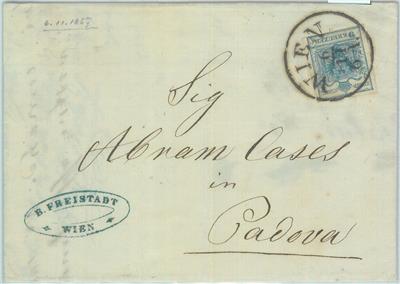 6.11.1857
WIEN
Sig
Abram Cases
in
Padova
B. FREISTADT
WIEN